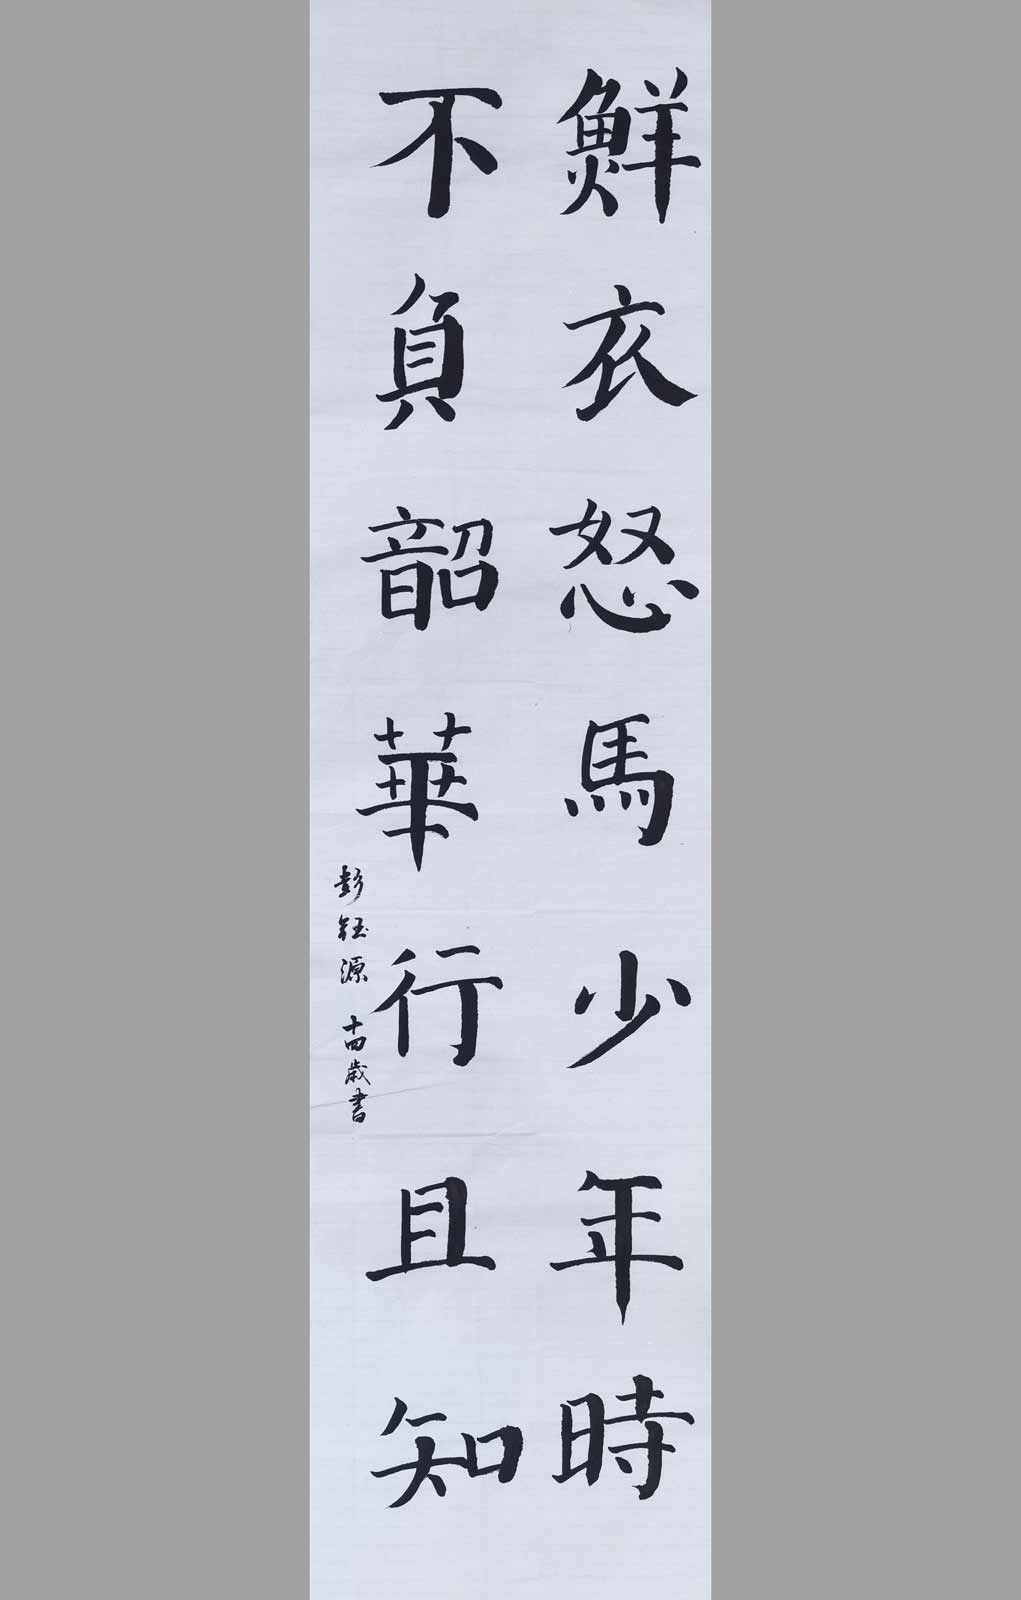 鮮衣怒馬少年時
不負韶華行且知
彭鈺源 十四歲書